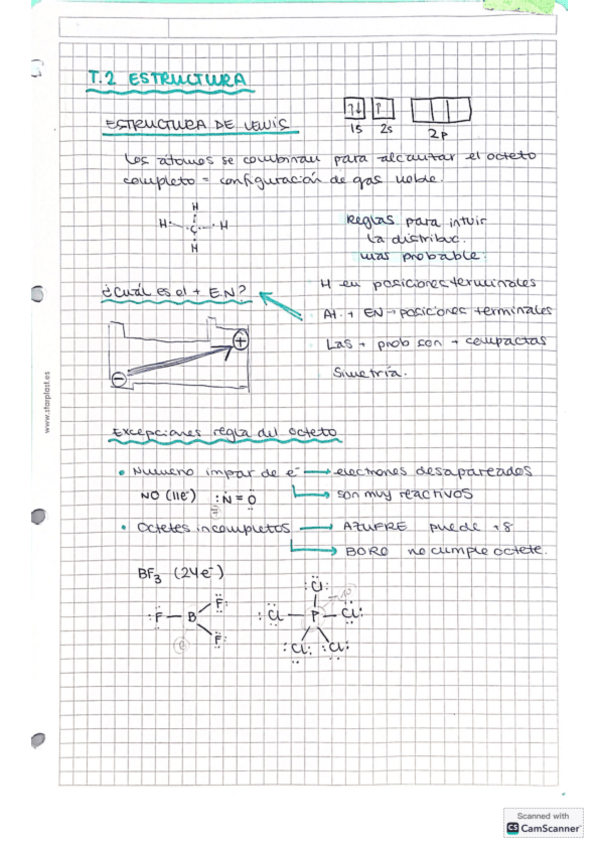 T.2 ESTRUCTURA
ESTRUCTURA DE LEWIS
1s 2s 2p
Los átomos se combinan para alcanzar el octeto
completo = configuración de gas noble.
H
H C H
H
Reglas para intuir
la distribuc.
más probable:
¿Cuál es el + EN?
H en posiciones terminales
At. + EN → posiciones terminales
Las + prob son + compactas
Simetría.
+
-
www.starplast.es
Excepciones regla del octeto
• Número impar de e⁻ → electrones desapareados
NO (11e⁻) :N = O → son muy reactivos
• Octetes incompletos → AZUFRE puede +8
→ BORO no cumple octete.
BF₃ (24 e⁻)
:F — B F: F:
:Cl — P — Cl: :Cl: :Cl: :Cl:
Scanned with
CS CamScanner